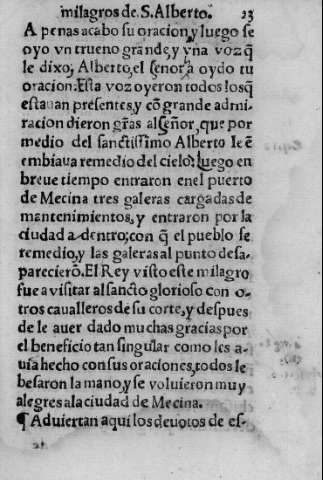 milagros de S. Alberto. 23
A penas acabo su oracion, y luego se
oyo vn trueno grande, y vna voz q̃
le dixo; Alberto, el señor a oydo tu
oracion: Esta voz oyeron todos los q̃
estauan presentes, y cõ grande admi-
racion dieron gr̃as al Señor, que por
medio del sanctissimo Alberto le ẽ
embiaua remedio del cielo: luego en
breue tiempo entraron en el puerto
de Mecina tres galeras cargadas de
mantenimientos, y entraron por la
ciudad a dentro; con q̃ el pueblo se
remedio, y las galeras al punto desa-
parecierõ. El Rey visto este milagro
fue a visitar al sancto glorioso con o-
tros caualleros de su corte, y despues
de le auer dado muchas gracias por
el beneficio tan singular como les a-
uia hecho con sus oraciones, todos le
besaron la mano, y se voluieron muy
alegres a la ciudad de Mecina.
¶ Aduiertan aqui los deuotos de es-